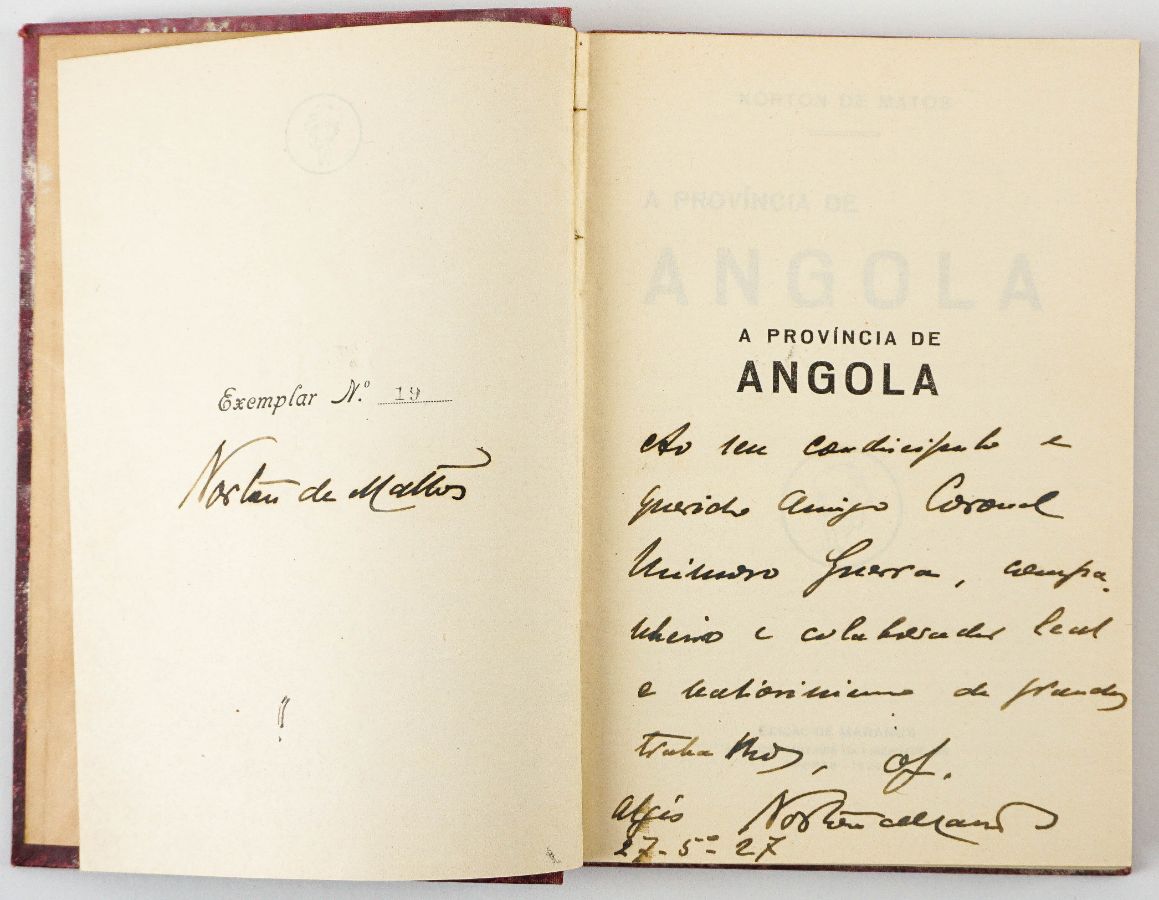 Exemplar N.º 19
Norton de Mattos
NORTON DE MATOS
A PROVÍNCIA DE
ANGOLA
A PROVÍNCIA DE
ANGOLA
Ao seu condiscipulo e
querido amigo Coronel
Guerra, compa-
nheiro e colaborador leal
e de grandes
trabalhos, of.
Algés Norton de Mattos
27-5º-27